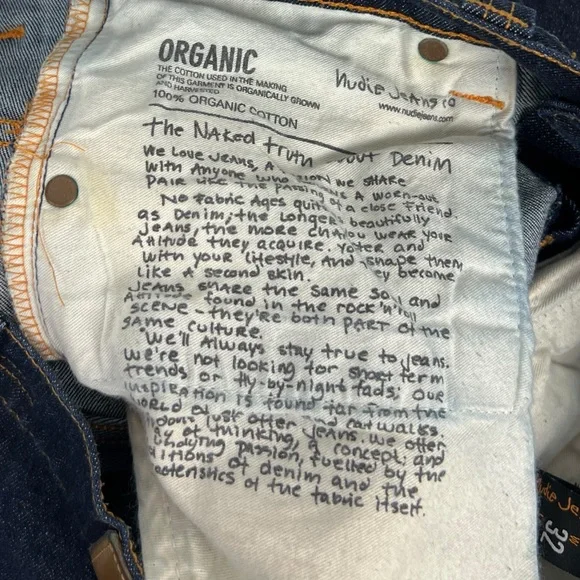 ORGANIC
THE COTTON USED IN THE MAKING
OF THIS GARMENT IS ORGANICALLY GROWN
AND HARVESTED
100% ORGANIC COTTON
nudie jeans co
www.nudiejeans.com
The Naked truth Denim
We Love Jeans, A we SHARE
with Anyone who A worn-out
PAIR LIKE THE PASSING of a close friend.
No Fabric Ages beautifully
as Denim; the Longer WEAR your
Jeans, the more and
Attitude they acquire. shape them
with your lifestyle, And become
like A second skin.
Jeans SHARE the same and
Attitude found in the rock 'n' roll
SCENE - they're both PART of the
same culture.
We'll Always stay true to Jeans.
We're not looking for short term
trends or fly-by-night fads; our
inspiration is found far from the
world catwalks
just offer Jeans. We offer
of thinking, a concept; and
passion, fuelled by the
of denim and the
of the fabric itself.
Nudie Je
32